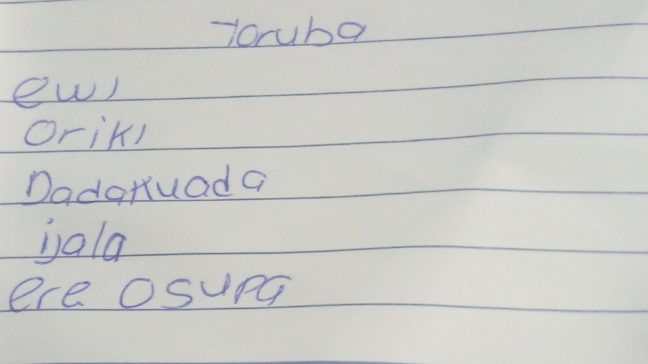 Yoruba
ewi
Oriki
Dadakuada
ijala
ere osupa